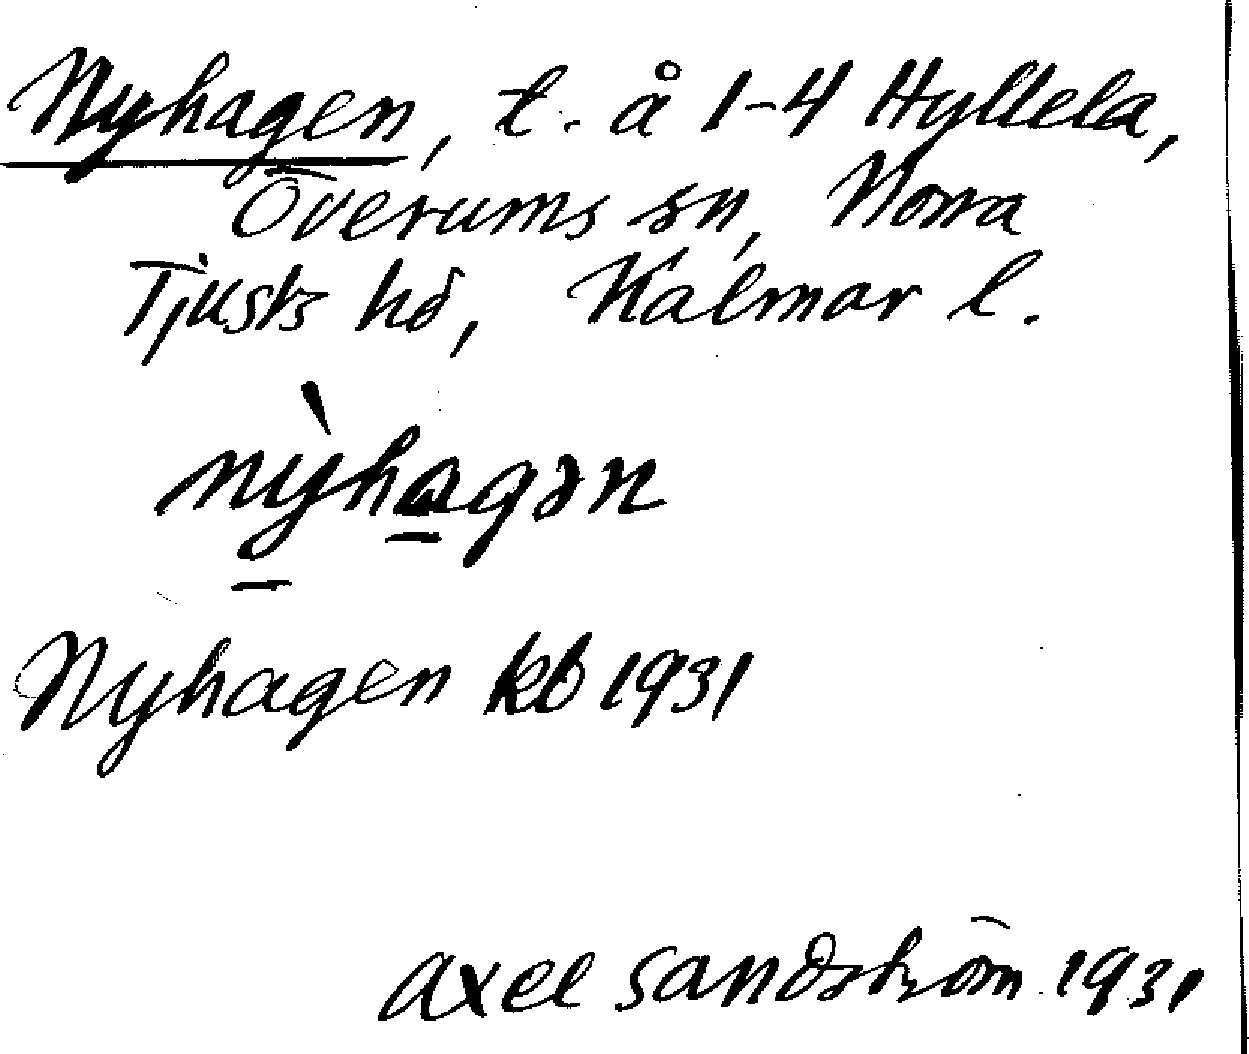 Nyhagen, t. å 1-4 Hyllela,
Överums sn, Norra
Tjusts hd, Kalmar l.
nỳhagən
Nyhagen kb 1931
Axel Sandström 1931